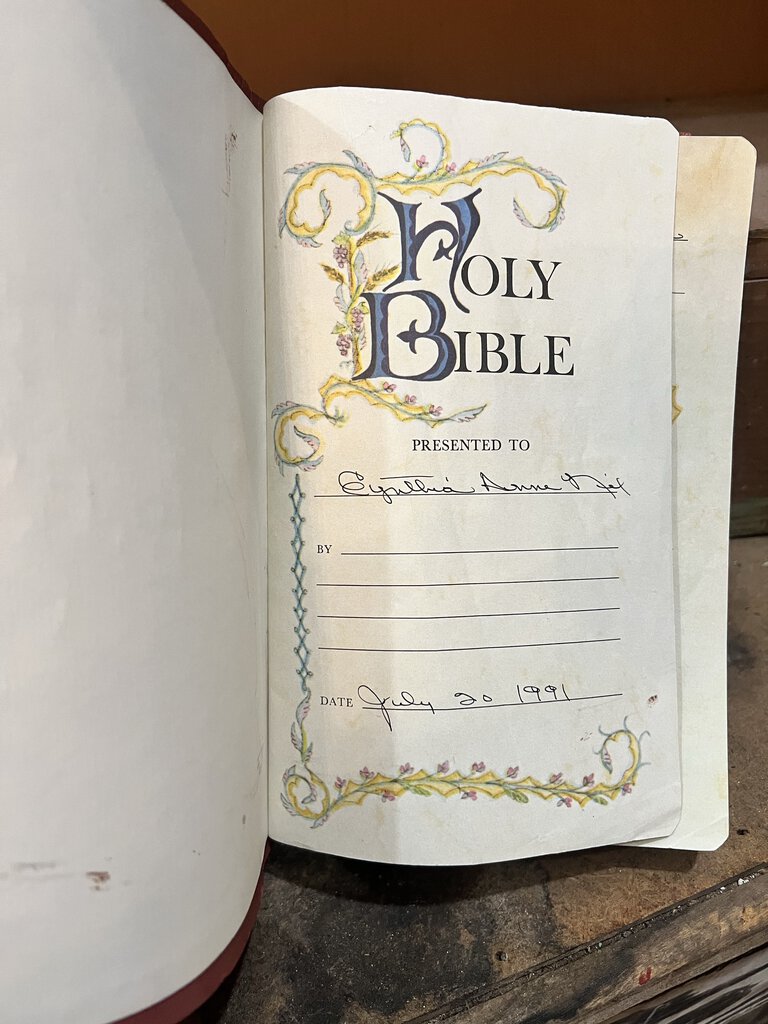 HOLY
BIBLE
PRESENTED TO
Cynthia Anne Nix
BY
DATE July 20 1991